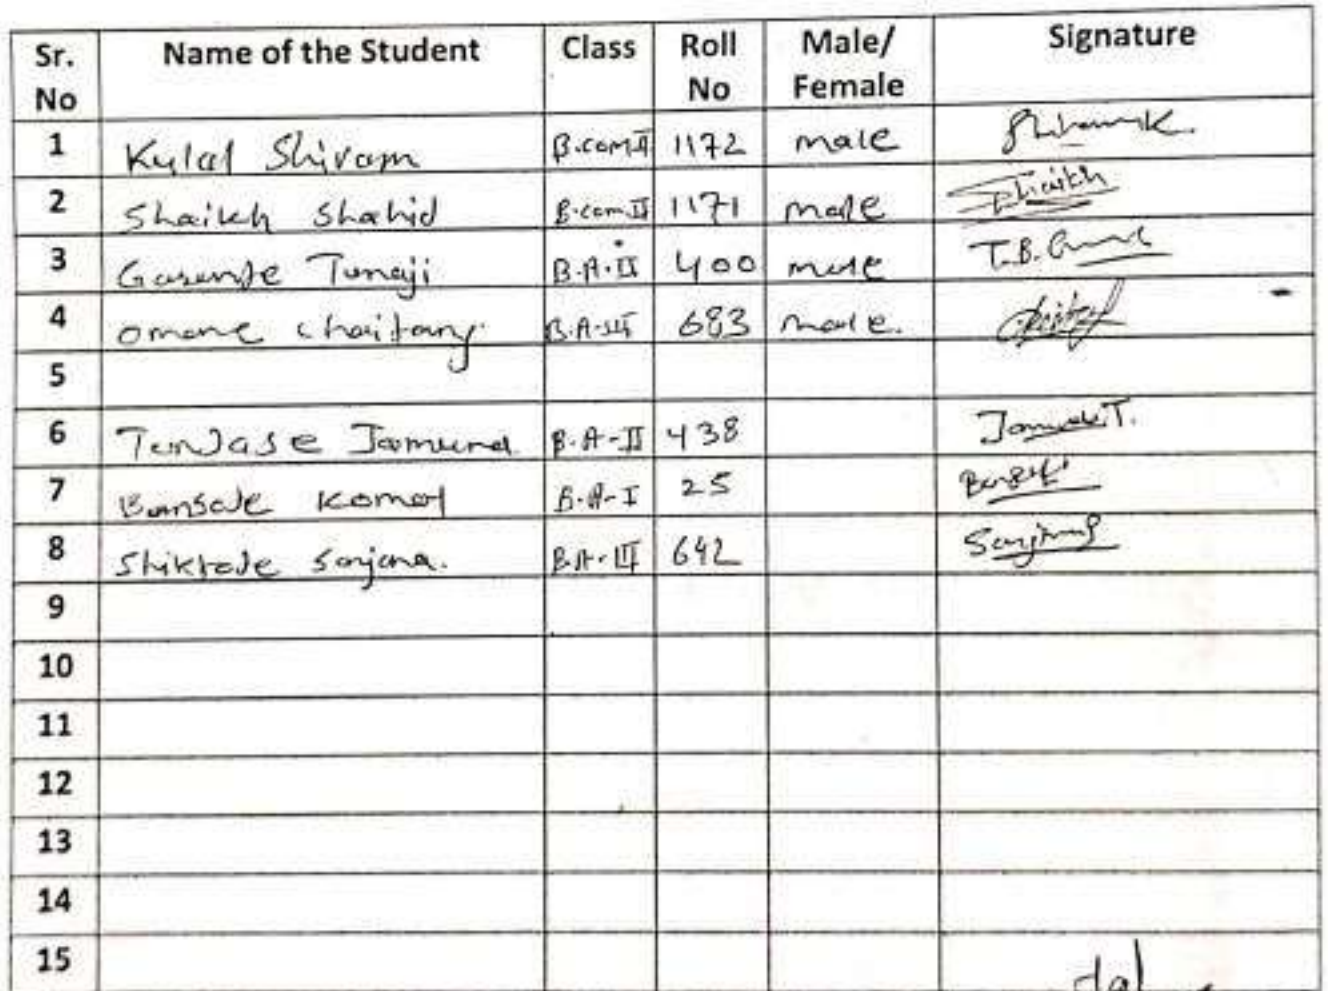 Sr. No Name of the Student Class Roll No Male/ Female Signature
1 Kulal Shivam B.com II 1172 male Shivam K.
2 Shaikh Shahid B.com II 1171 male Shaikh
3 Tanaji B.A. II 400 male T.B.
4 omane chaitany B.A-III 683 male.
5
6 Jamuna B.A-II 438 Jamuna T.
7 Bansode Komal B.A-I 25
8 Sanjana. B.A-III 642 Sanjana
9
10
11
12
13
14
15